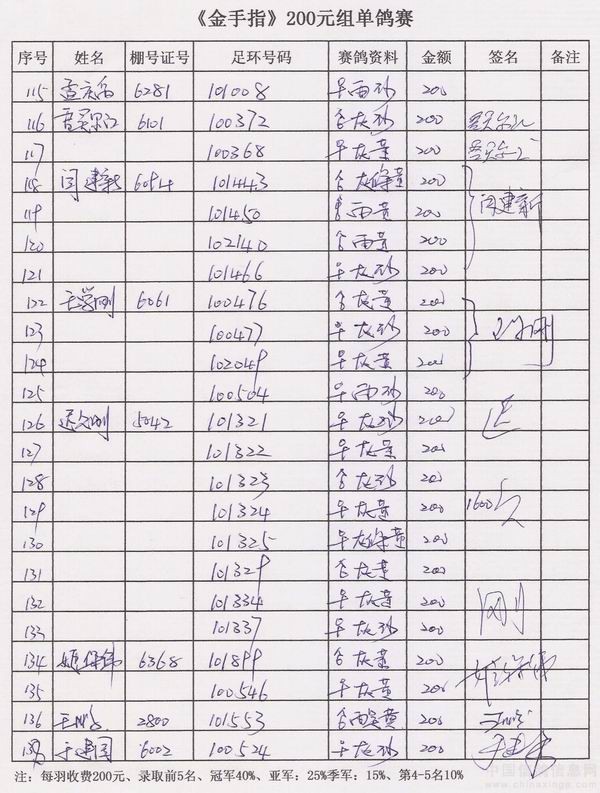 《金手指》200元组单鸽赛
序号 姓名 棚号证号 足环号码 赛鸽资料 金额 签名 备注
115 孟庆 6281 101008 雨砂 200
116 6101 100372 灰砂 200
117 100368 灰黄 200
118 闫建新 6054 101443 灰绛黄 200 闫建新
119 101450 雨黄 200
120 102140 雨黄 200
121 101466 灰砂 200
122 王学刚 6061 100476 灰黄 200
123 100477 灰砂 200
124 102049 灰黄 200
125 100504 雨砂 200
126 刚 5042 101321 灰砂 200
127 101322 灰黄 200
128 101323 灰砂 200
129 101324 灰黄 200 1600
130 101325 灰绛黄 200
131 101329 灰黄 200
132 101334 灰黄 200 刚
133 101337 灰砂 200
134 姚保伟 6368 101899 灰黄 200
135 100546 灰黄 200
136 王 2800 101553 雨 黄 200
137 于建国 6002 100524 灰砂 200
注：每羽收费200元、录取前5名、冠军40%、亚军：25%季军：15%、第4-5名10%
中国信鸽信息网
www.chinaxinge.com